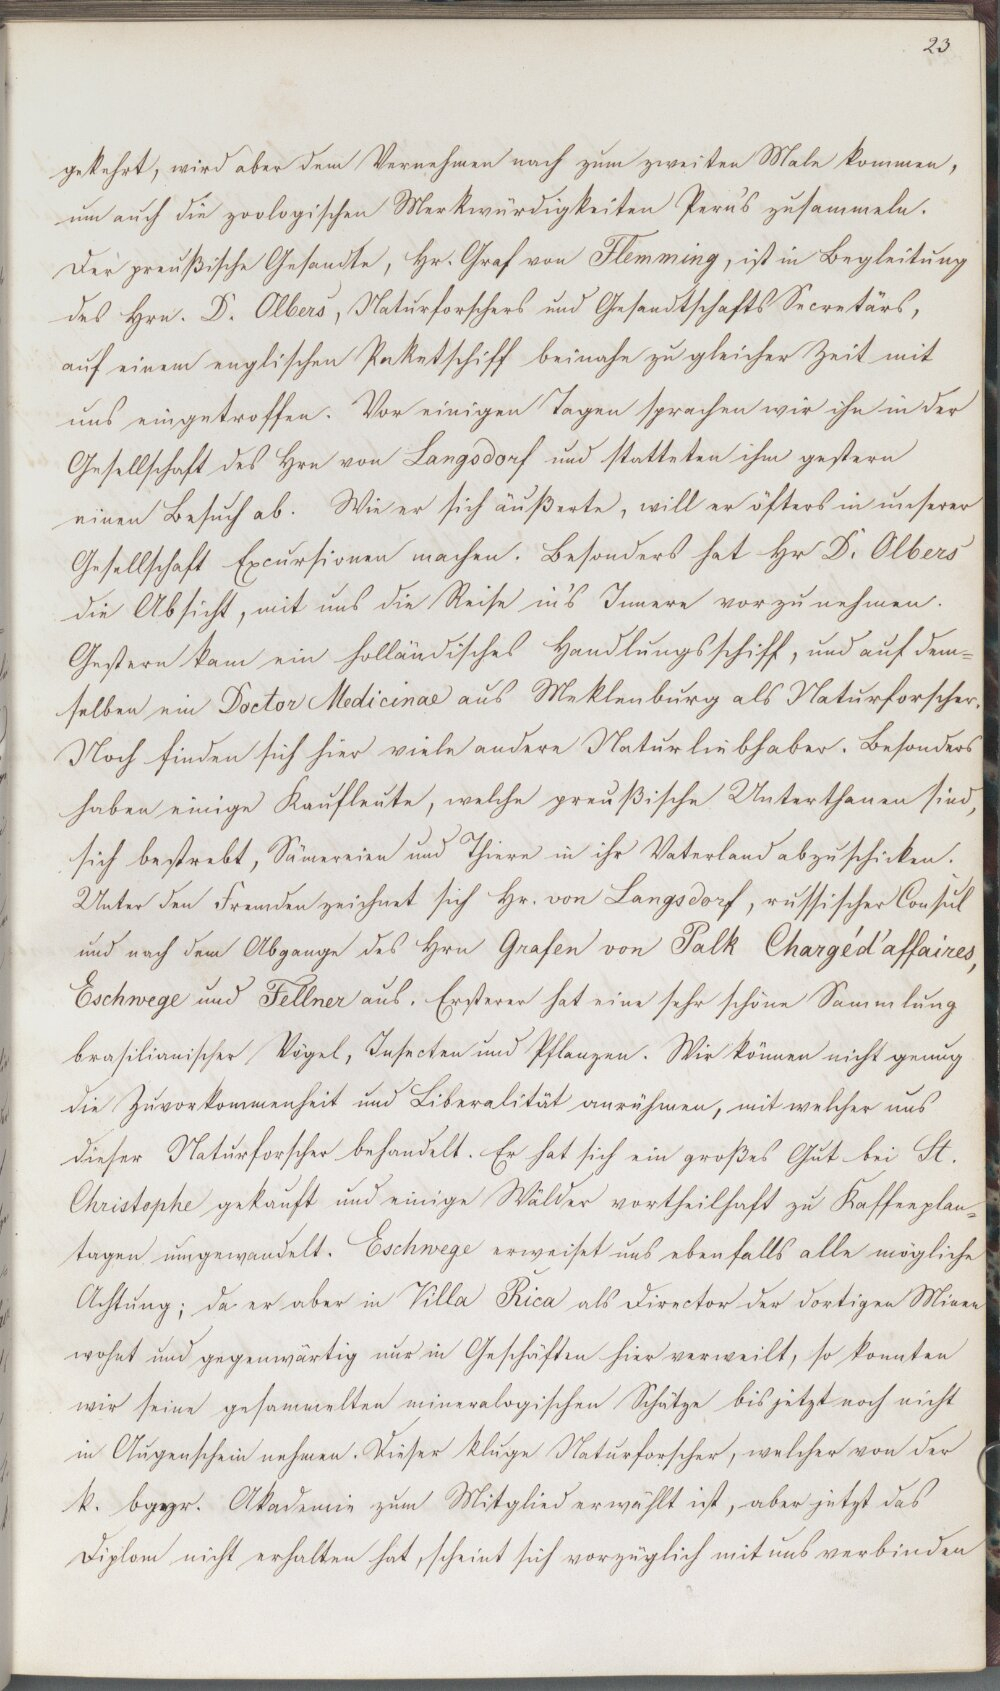 23
gekehrt, wird aber dem Vernehmen nach zum zweiten Male kommen,
um auch die zoologischen Merkwürdigkeiten Peru's zusammeln.
Der preußische Gesandte, Hr. Graf von Flemming, ist in Begleitung
des Hrn. D. Olbers, Naturforschers und Gesandtschafts Secretärs,
auf einem englischen Paketschiff beinahe zu gleicher Zeit mit
uns eingetroffen. Vor einigen Tagen sprachen wir ihn in der
Gesellschaft des Hrn von Langsdorf und statteten ihm gestern
einen Besuch ab. Wie er sich äußerte, will er öfters in unserer
Gesellschaft Excursionen machen. Besonders hat Hr D. Olbers
die Absicht, mit uns die Reise in's Innere vorzunehmen.
Gestern kam ein holländisches Handlungsschiff, und auf dem=
selben ein Doctor Medicinae aus Meklenburg als Naturforscher.
Noch finden sich hier viele andere Naturliebhaber. Besonders
haben einige Kaufleute, welche preußische Unterthanen sind,
sich bestrebt, Sämereien und Thiere in ihr Vaterland abzuschicken.
Unter den Fremden zeichnet sich Hr. von Langsdorf, russischer Consul
und nach dem Abgange des Hrn Grafen von Palk Chargé d'affaires,
Eschwege und Fellner aus. Ersterer hat eine sehr schöne Sammlung
brasilianischer Vögel, Insecten und Pflanzen. Wir können nicht genug
die Zuvorkommenheit und Liberalität anrühmen, mit welcher uns
dieser Naturforscher behandelt. Er hat sich ein großes Gut bei St.
Christophe gekauft und einige Wälder vortheilhaft zu Kaffeeplan=
tagen umgewandelt. Eschwege erweiset uns ebenfalls alle mögliche
Achtung; da er aber in Villa Rica als Director der dortigen Minen
wohnt und gegenwärtig nur in Geschäften hier verweilt, so konnten
wir seine gesammelten mineralogischen Schätze bis jetzt noch nicht
in Augenschein nehmen. Dieser kluge Naturforscher, welcher von der
k. bayr. Akademie zum Mitglied erwählt ist, aber jetzt das
Diplom nicht erhalten hat, scheint sich vorzüglich mit uns verbinden